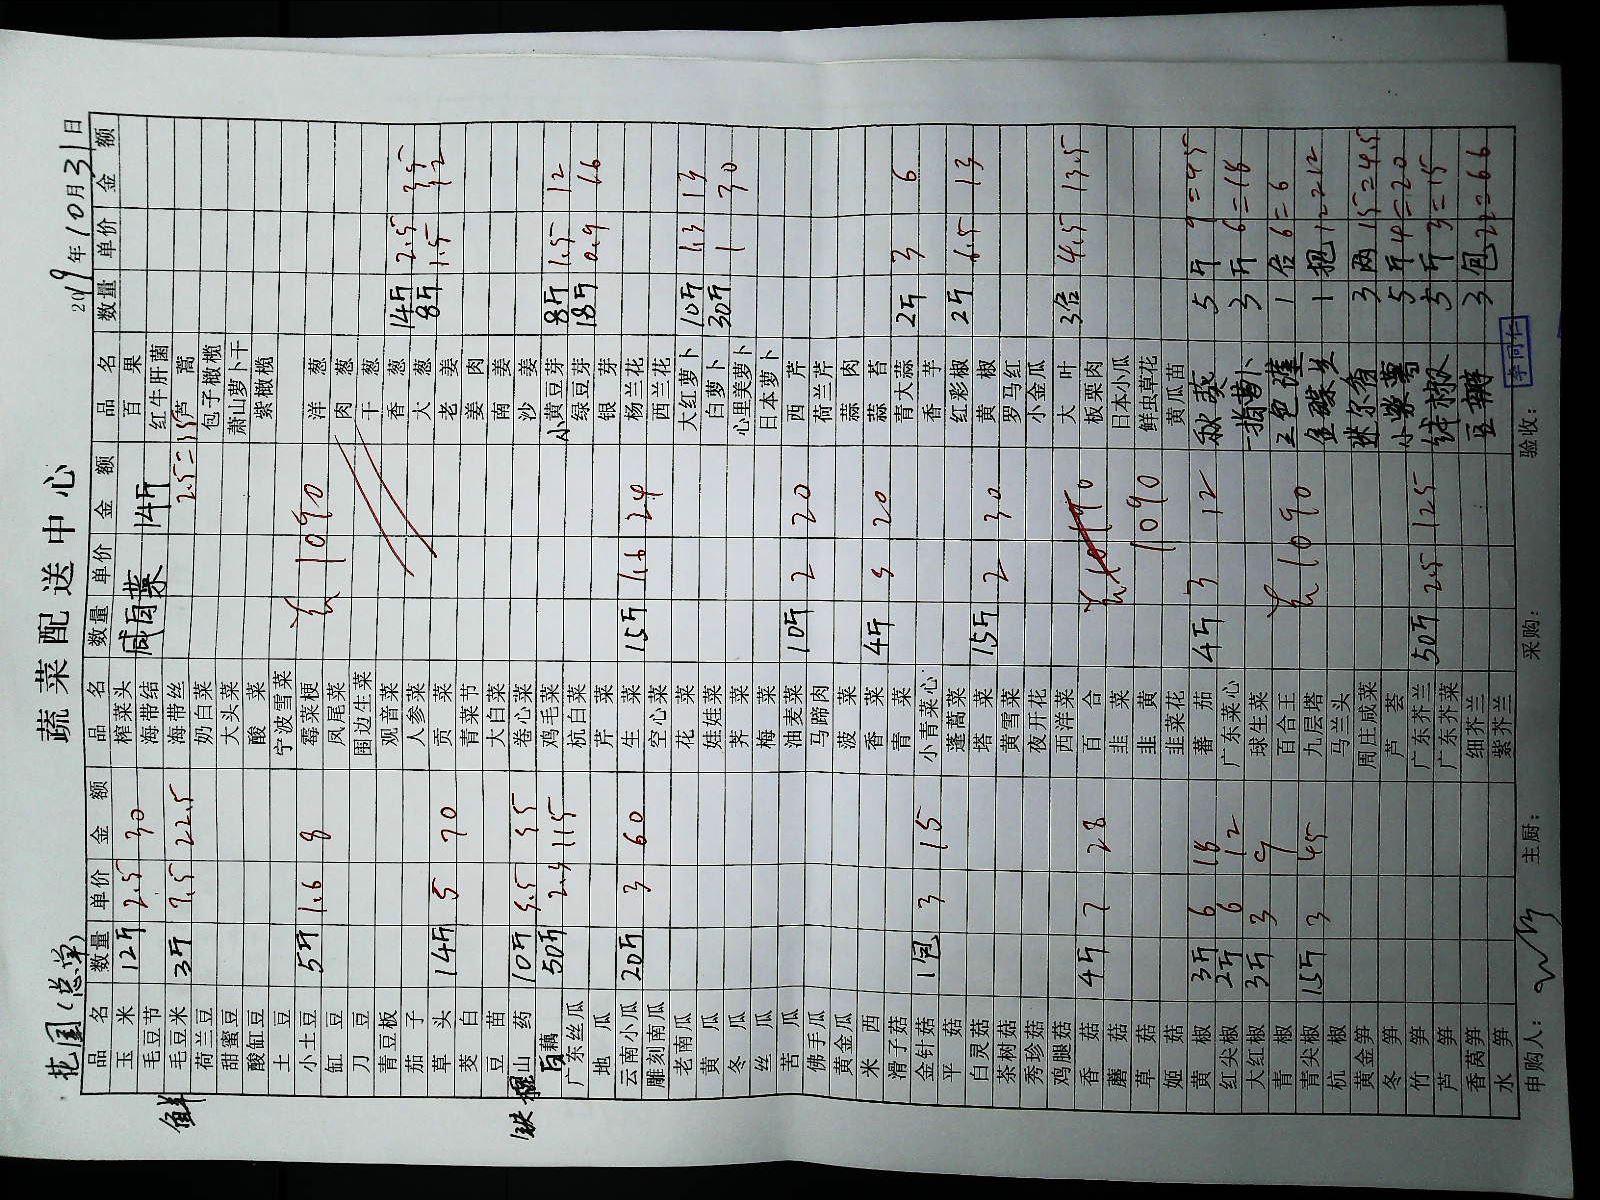 蔬菜配送中心
花园(总单) 2019年10月31日
品名 数量 单价 金额 品名 数量 单价 金额 品名 数量 单价 金额
玉米 12斤 2.5 30 榨菜头 百果
毛豆节 海带结 咸肉菜 14斤 红牛肝菌
鲜毛豆米 3斤 7.5 22.5 海带丝 2.5=35 芦蒿
荷兰豆 奶白菜 包子橄榄
甜蜜豆 大头菜 萧山萝卜干
酸缸豆 酸菜 紫橄榄
土豆 宁波雪菜
小土豆 5斤 1.6 8 霉菜梗 1090 洋葱
缸豆 凤尾菜 肉葱
刀豆 围边生菜 干葱
青豆板 观音菜 香葱 14斤 2.5 35
茄子 人参菜 大葱 8斤 1.5 12
草头 14斤 5 70 贡菜 老姜
茭白 青菜节 姜肉
豆苗 大白菜 南姜
铁棍山药 10斤 5.5 55 卷心菜 沙姜
白藕 50斤 2.3 115 鸡毛菜 小黄豆芽 8斤 1.5 12
广东丝瓜 杭白菜 绿豆芽 18斤 0.9 16
地瓜 芹菜 银芽
云南小瓜 20斤 3 60 生菜 15斤 1.6 24 杨兰花
雕刻南瓜 空心菜 西兰花
老南瓜 花菜 大红萝卜 10斤 1.3 13
黄瓜 娃娃菜 白萝卜 30斤 1 30
冬瓜 荠菜 心里美萝卜
丝瓜 梅菜 日本萝卜
苦瓜 油麦菜 10斤 2 20 西芹
佛手瓜 马蹄肉 荷兰芹
黄金瓜 菠菜 蒜肉
米西 香菜 4斤 5 20 蒜苔
滑子菇 青菜 青大蒜 2斤 3 6
金针菇 1包 3 15 小青菜心 香芋
平菇 蓬蒿菜 红彩椒 2斤 6.5 13
白灵菇 塔菜 15斤 2 30 黄椒
茶树菇 黄雪菜 罗马红
秀珍菇 夜开花 小金瓜
鸡腿菇 西洋菜 大叶 3包 4.5 13.5
香菇 4斤 7 28 百合 板栗肉
蘑菇 韭菜 日本小瓜
草菇 韭黄 1090 鲜虫草花
姬菇 韭菜花 黄瓜苗
黄椒 3斤 6 18 蕃茄 4斤 3 12 秋葵 5斤 9=45
红尖椒 2斤 6 12 广东菜心 一指萝卜 3斤 6=18
大红椒 3斤 3 9 球生菜 三色堇 1合 6=6
青椒 百合王 1090
青尖椒 15斤 3 45 九层塔 1把 12=12
杭椒 马兰头
黄金笋 周庄咸菜 迷尔香 3两 15=4.5
冬笋 芦荟 小紫薯 5斤 4=20
竹笋 广东芥兰 50斤 2.5 125
芦笋 广东芥菜 线椒 5斤 3=15
香莴笋 细芥兰 豆瓣 3包 22=66
水笋 紫芥兰
申购人： 主厨： 采购： 验收：